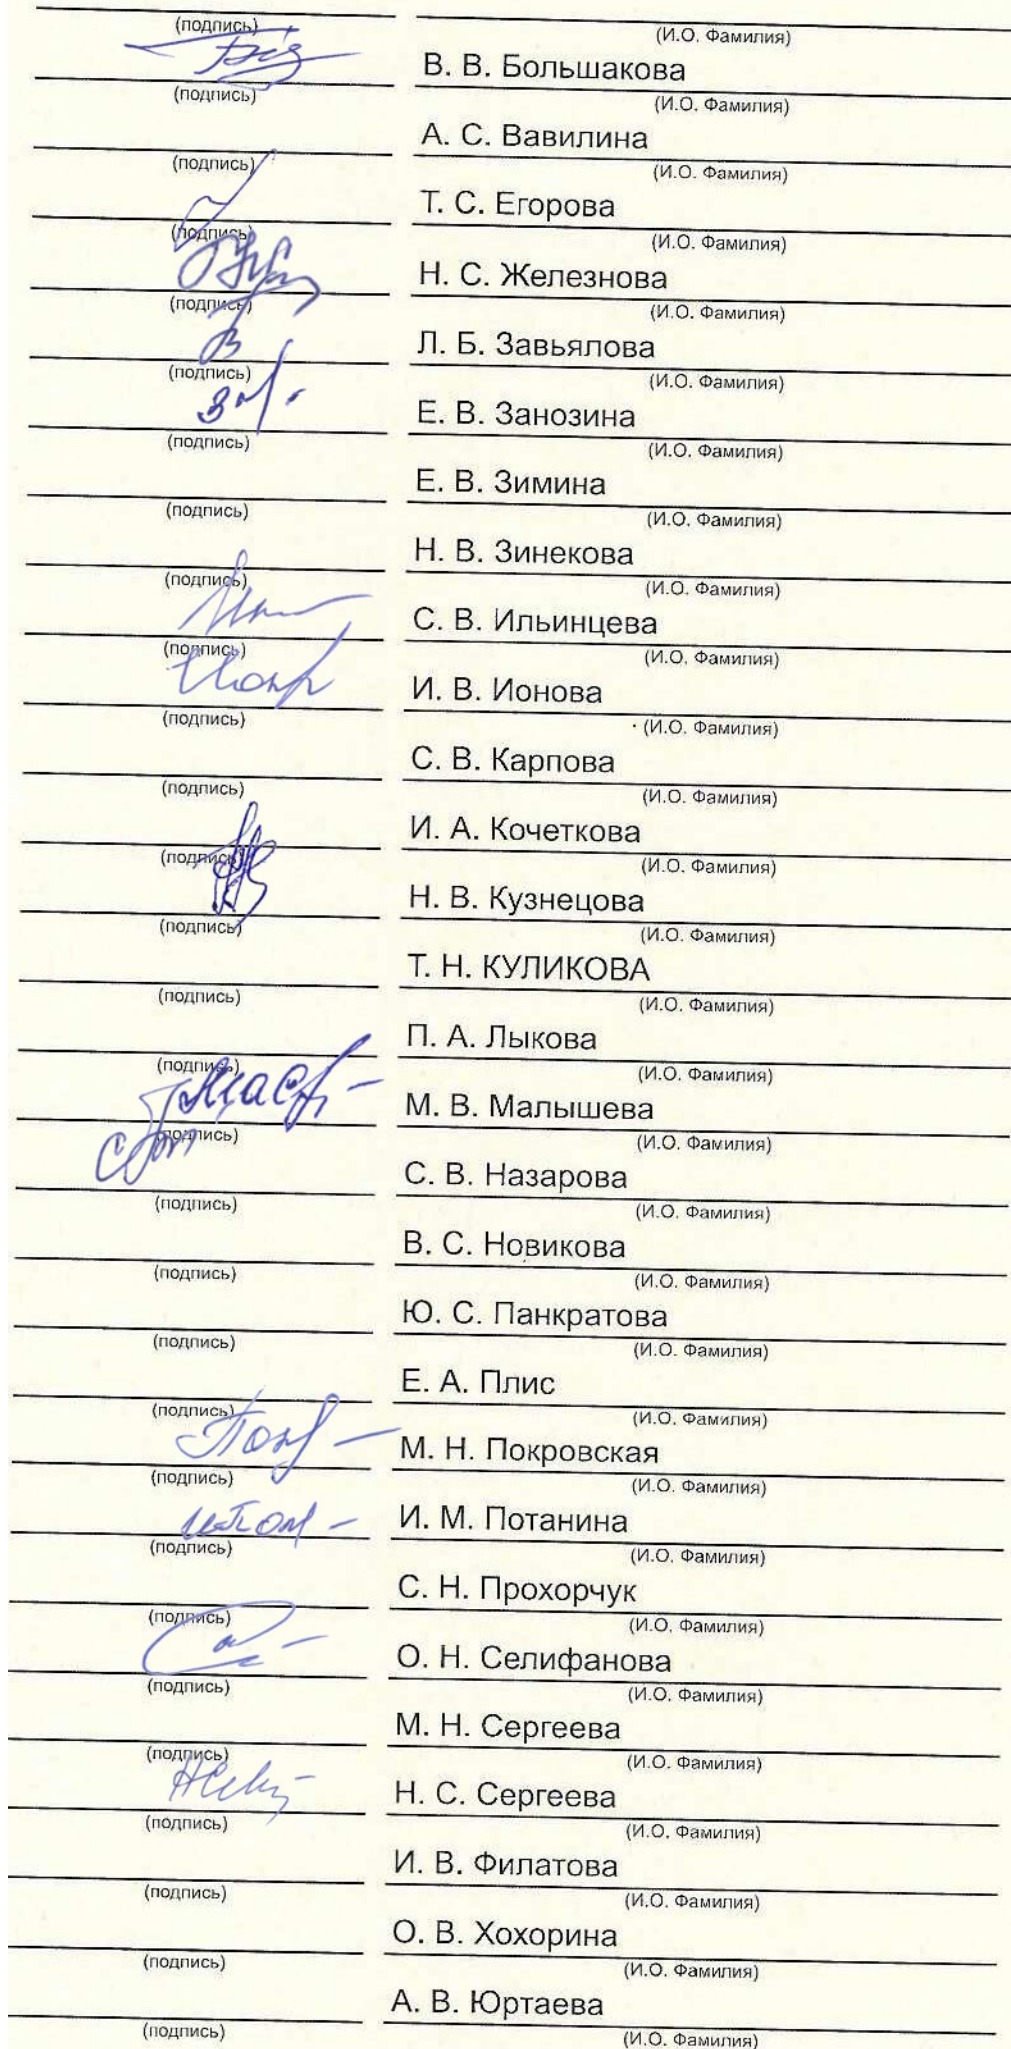 (подпись) (И.О. Фамилия)
В. В. Большакова
(подпись) (И.О. Фамилия)
А. С. Вавилина
(подпись) (И.О. Фамилия)
Т. С. Егорова
(подпись) (И.О. Фамилия)
Н. С. Железнова
(подпись) (И.О. Фамилия)
Л. Б. Завьялова
(подпись) (И.О. Фамилия)
Е. В. Занозина
(подпись) (И.О. Фамилия)
Е. В. Зимина
(подпись) (И.О. Фамилия)
Н. В. Зинекова
(подпись) (И.О. Фамилия)
С. В. Ильинцева
(подпись) (И.О. Фамилия)
И. В. Ионова
(подпись) (И.О. Фамилия)
С. В. Карпова
(подпись) (И.О. Фамилия)
И. А. Кочеткова
(подпись) (И.О. Фамилия)
Н. В. Кузнецова
(подпись) (И.О. Фамилия)
Т. Н. КУЛИКОВА
(подпись) (И.О. Фамилия)
П. А. Лыкова
(подпись) (И.О. Фамилия)
М. В. Малышева
(подпись) (И.О. Фамилия)
С. В. Назарова
(подпись) (И.О. Фамилия)
В. С. Новикова
(подпись) (И.О. Фамилия)
Ю. С. Панкратова
(подпись) (И.О. Фамилия)
Е. А. Плис
(подпись) (И.О. Фамилия)
М. Н. Покровская
(подпись) (И.О. Фамилия)
И. М. Потанина
(подпись) (И.О. Фамилия)
С. Н. Прохорчук
(подпись) (И.О. Фамилия)
О. Н. Селифанова
(подпись) (И.О. Фамилия)
М. Н. Сергеева
(подпись) (И.О. Фамилия)
Н. С. Сергеева
(подпись) (И.О. Фамилия)
И. В. Филатова
(подпись) (И.О. Фамилия)
О. В. Хохорина
(подпись) (И.О. Фамилия)
А. В. Юртаева
(подпись) (И.О. Фамилия)